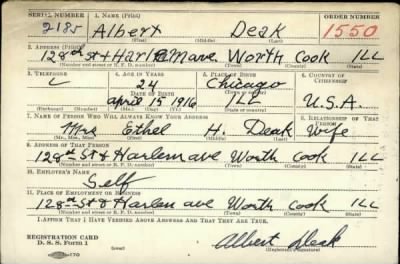 SERIAL NUMBER 1. NAME (Print) ORDER NUMBER
2185 Albert Deak 1550
2. ADDRESS (Print)
128th St & Harlem ave. Worth Cook ILL
(Number and street or R. F. D. number) (Town) (County) (State)
3. TELEPHONE 4. AGE IN YEARS 5. PLACE OF BIRTH 6. COUNTRY OF CITIZENSHIP
24 Chicago
DATE OF BIRTH
April 15 1916 ILL U.S.A.
7. NAME OF PERSON WHO WILL ALWAYS KNOW YOUR ADDRESS 8. RELATIONSHIP OF THAT PERSON
Mrs Ethel H. Deak Wife
(Mr., Mrs., Miss) (First) (Middle) (Last)
9. ADDRESS OF THAT PERSON
128th St & Harlem ave Worth Cook ILL
(Number and street or R. F. D. number) (Town) (County) (State)
10. EMPLOYER'S NAME
Self
11. PLACE OF EMPLOYMENT OR BUSINESS
128th St & Harlem ave Worth Cook ILL
(Number and street or R. F. D. number) (Town) (County) (State)
I AFFIRM THAT I HAVE VERIFIED ABOVE ANSWERS AND THAT THEY ARE TRUE.
REGISTRATION CARD
D. S. S. Form 1 (over) Albert Deak
(Registrant's signature)